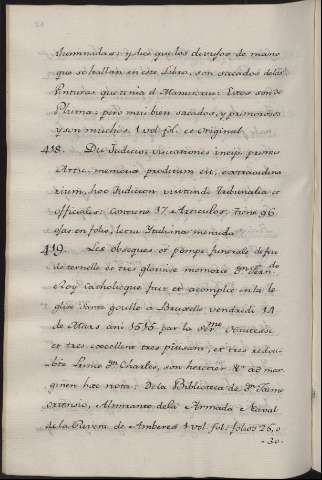 iluminadas: y dice que los dibujos de mano
que se hallan en este Libro, son sacados de las
Pinturas que tenia el Manuscrito: Estos son de
Pluma; pero mui bien sacados, y primorosos
y son muchos. 1 vol. fol. es Original.
418. De Judiciis, visitationes incip. primus
Artic. memoria proditum est, extraordina
rium, hoc Judicium visitandi Tribunalia et
officiales: Contiene 37 Articulos, tiene 96
ojas en folio, letra Italiana menuda.
419. Les obseques et pompe funerale de feu
de ternelle et tres glorieuse memoire Dn. Fernando
Roy Catholicque fait et acomplie en la
glise Sainte goulle a Bruxelle vendredi 14
de Mars ani 1515 par la
et tres excellent tres puissant, et tres redou
bté Prince Dn. Charles, son heritier &a. ad mar
ginem hec nota: De la Biblioteca de Dn.
Almirante de la Armada Naval
de la Rivera de Amberes 1 vol. fol. folios 26, o
30.